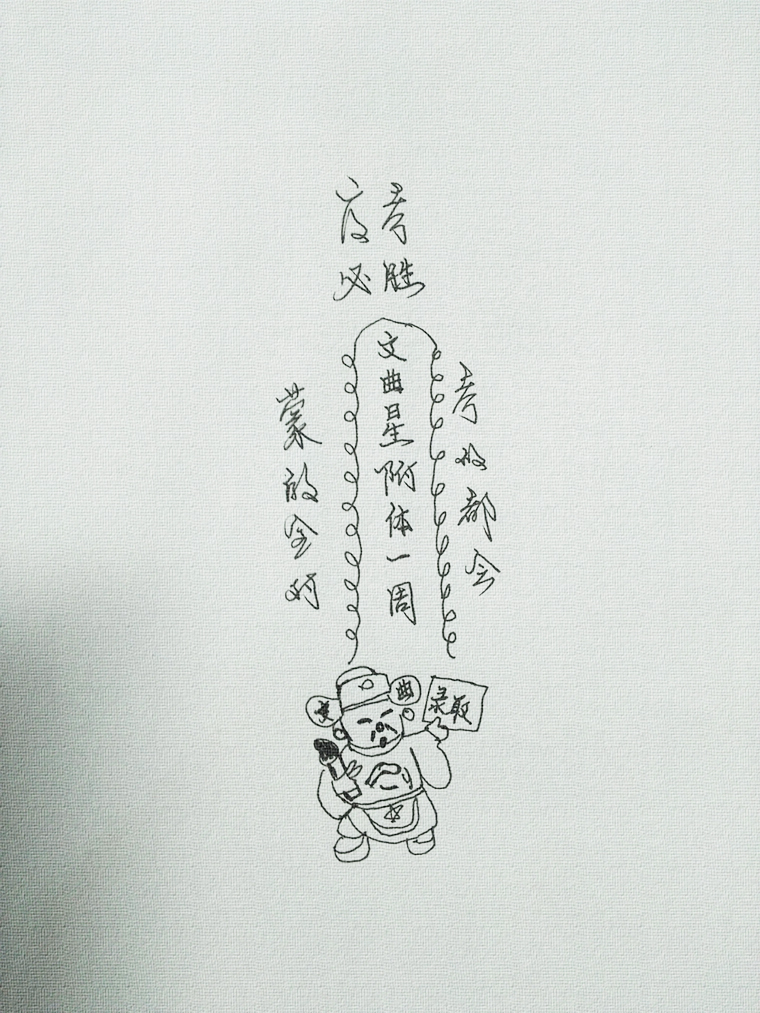 考
必胜
文曲星附体一周
考的都会
蒙的全对
文
曲
录取